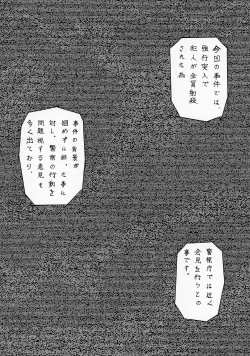 今回の事件では、
強行突入で
犯人が全員射殺
された為
事件の背景が
掴めずに終った事に
対し、警察の行動を
問題視する意見も
多く出ており、
警視庁では近く
会見を行うとの
事です。